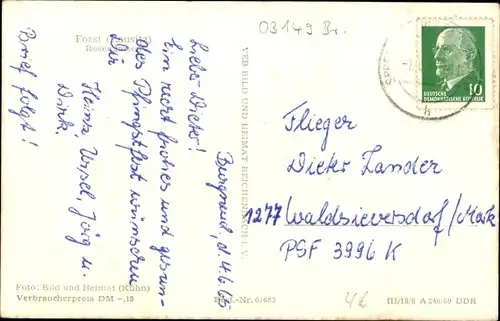 Forst (Lausitz)
03149 Br.
Burgneudorf, d. 4.6.65
Liebe Dieter!
Ein recht frohes und gesun-
des Pfingstfest wünschen
Dir
Heinz, Ursel, Jörg u.
Dirk.
Brief folgt!
VEB BILD UND HEIMAT REICHENBACH I. V.
DEUTSCHE
DEMOKRATISCHE REPUBLIK
10
Flieger
Dieter Zander
1277 Waldsieversdorf/Mark
PSF 3996 K
Foto: Bild und Heimat (Kühn)
Verbraucherpreis DM -,15
Best.-Nr. 6/683
4€
III/18/6 A 246.60 DDR